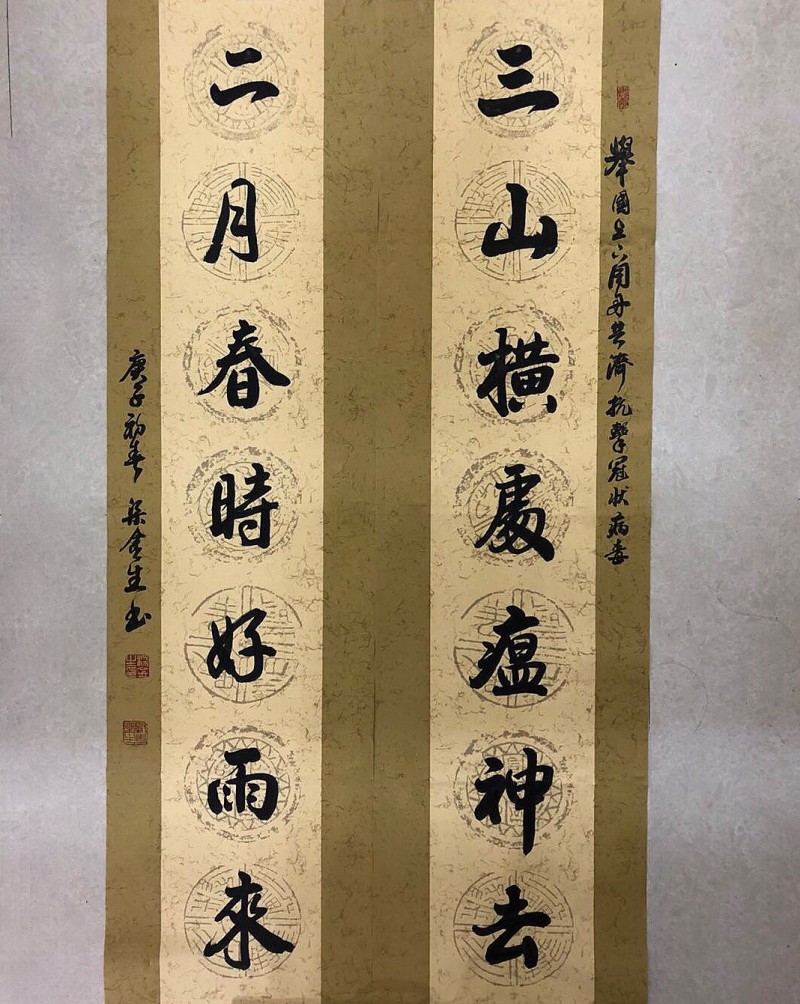 舉國上下同舟共濟抗擊冠狀病毒
三山橫處瘟神去
二月春時好雨來
庚子初春 梁金生书